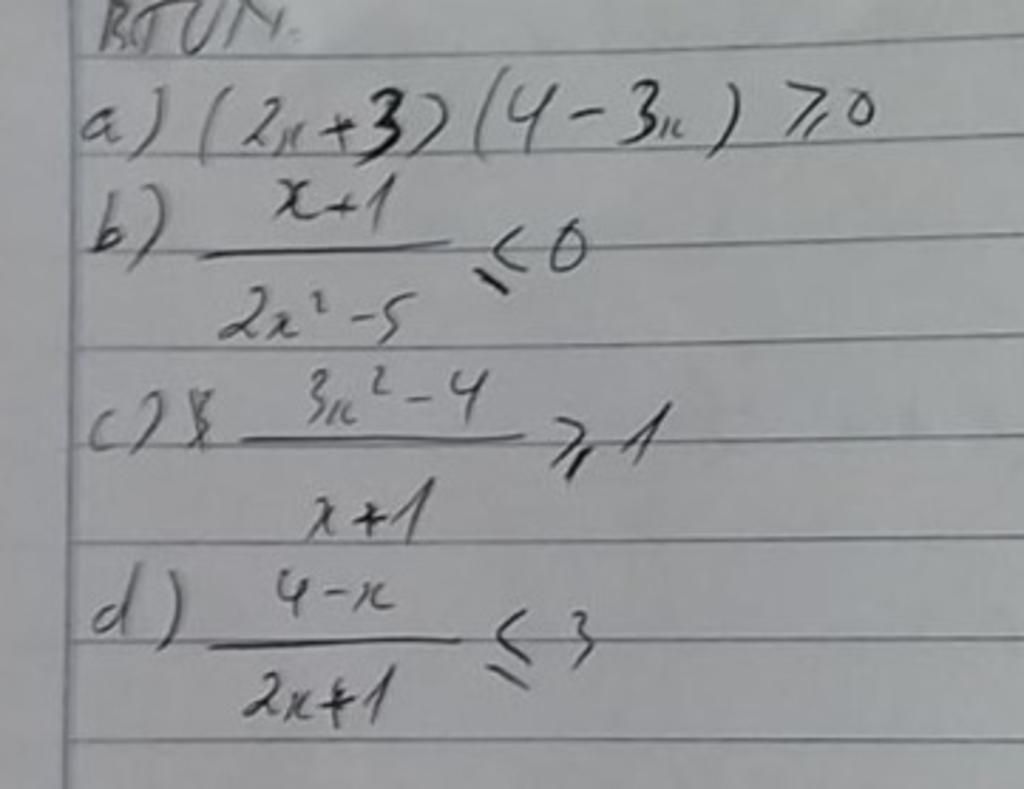 BTVN.
a) (2x+3)(4-3x) ≥0
b) x+1 / 2x²-5 ≤0
c) 3x²-4 / x+1 ≥1
d) 4-x / 2x+1 ≤3